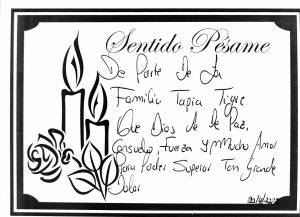 Sentido Pésame
De Parte De La
Familia Tapia Tigre
Que Dios Le De Paz,
Consuelo, Fuerza y Mucho Amor
Para Poder Superar Tan Grande
Dolor